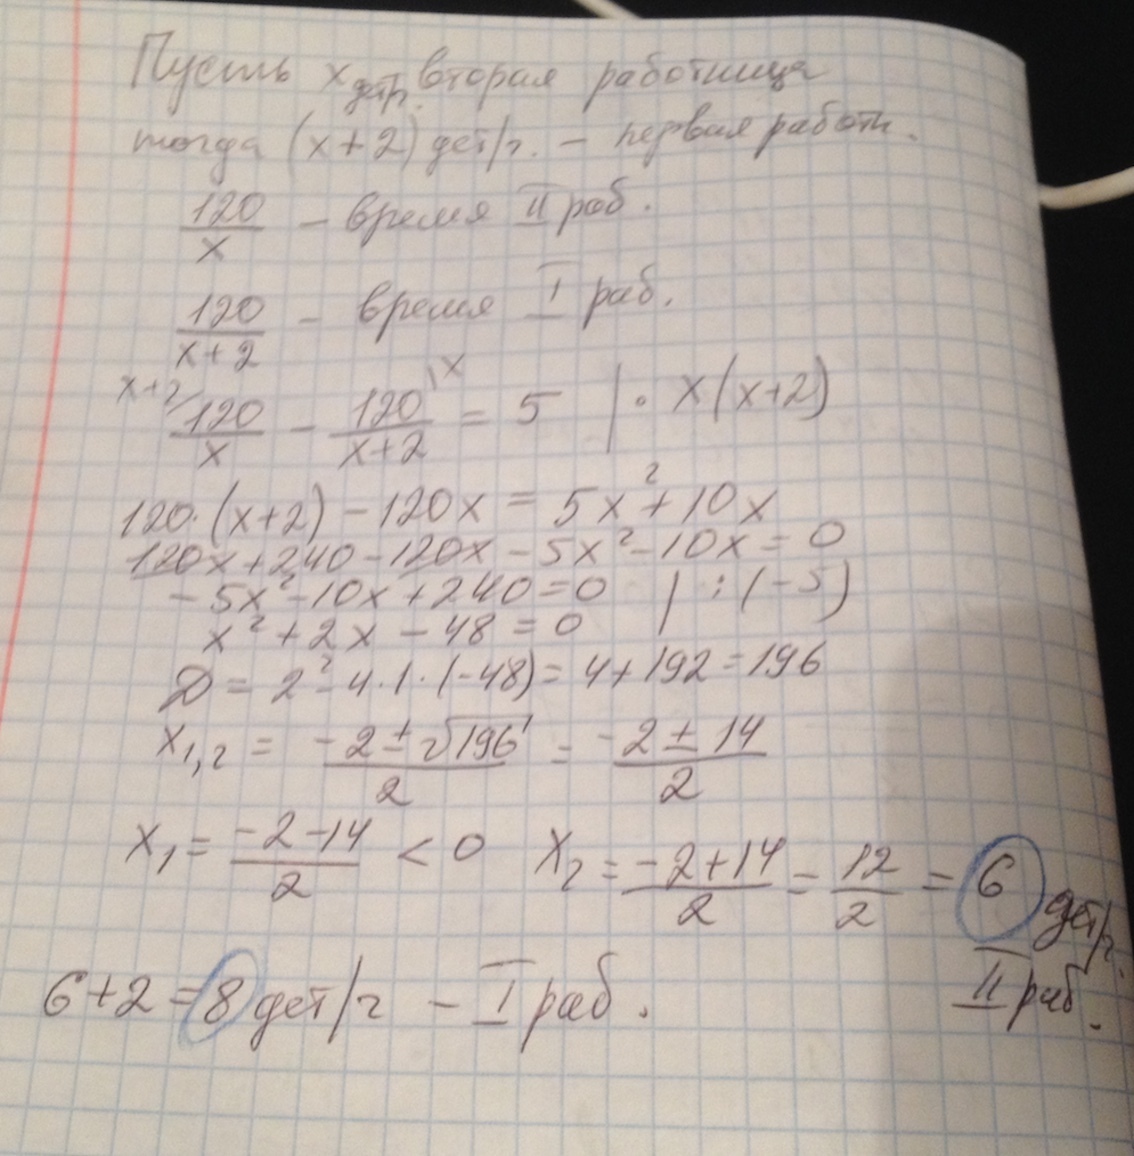 Пусть x дет/ч. вторая работница
тогда (x+2) дет/ч. – первая работн.
120/x – время II раб.
120/(x+2) – время I раб.
x+2/ 120/x – 120/(x+2) \x = 5 | · x(x+2)
120·(x+2) – 120x = 5x² + 10x
120x + 240 – 120x – 5x² – 10x = 0
– 5x² – 10x + 240 = 0 | : (–5)
x² + 2x – 48 = 0
D = 2² – 4·1·(–48) = 4 + 192 = 196
x₁,₂ = (–2 ± √196)/2 = (–2 ± 14)/2
x₁ = (–2–14)/2 < 0 x₂ = (–2+14)/2 = 12/2 = 6 дет/ч.
II раб.
6+2 = 8 дет/ч – I раб.